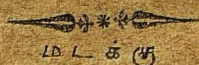 மடக்கு